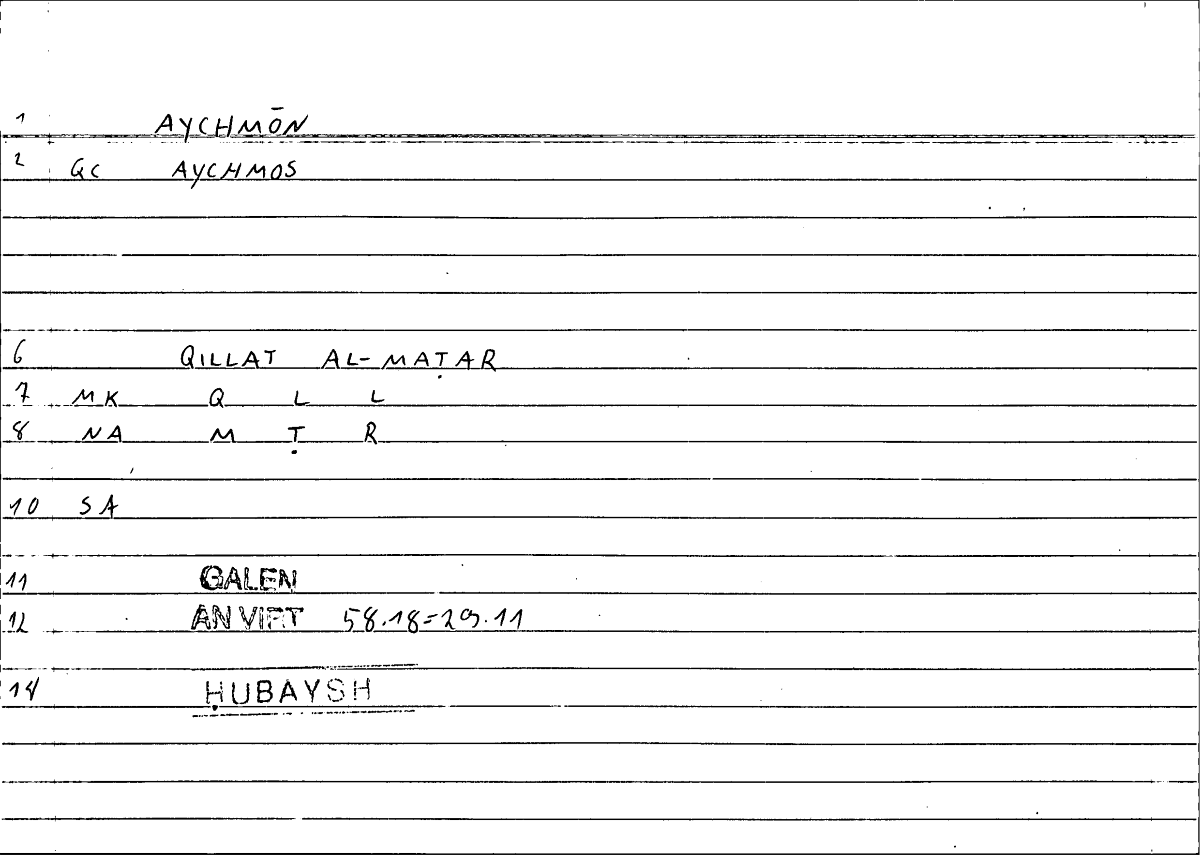 1 AYCHMŌN
2 QC AYCHMOS
6 QILLAT AL-MAṬAR
7 MK Q L L
8 NA M Ṭ R
10 SA
11 GALEN
12 AN VIRT 58.18=29.11
14 ḤUBAYSH